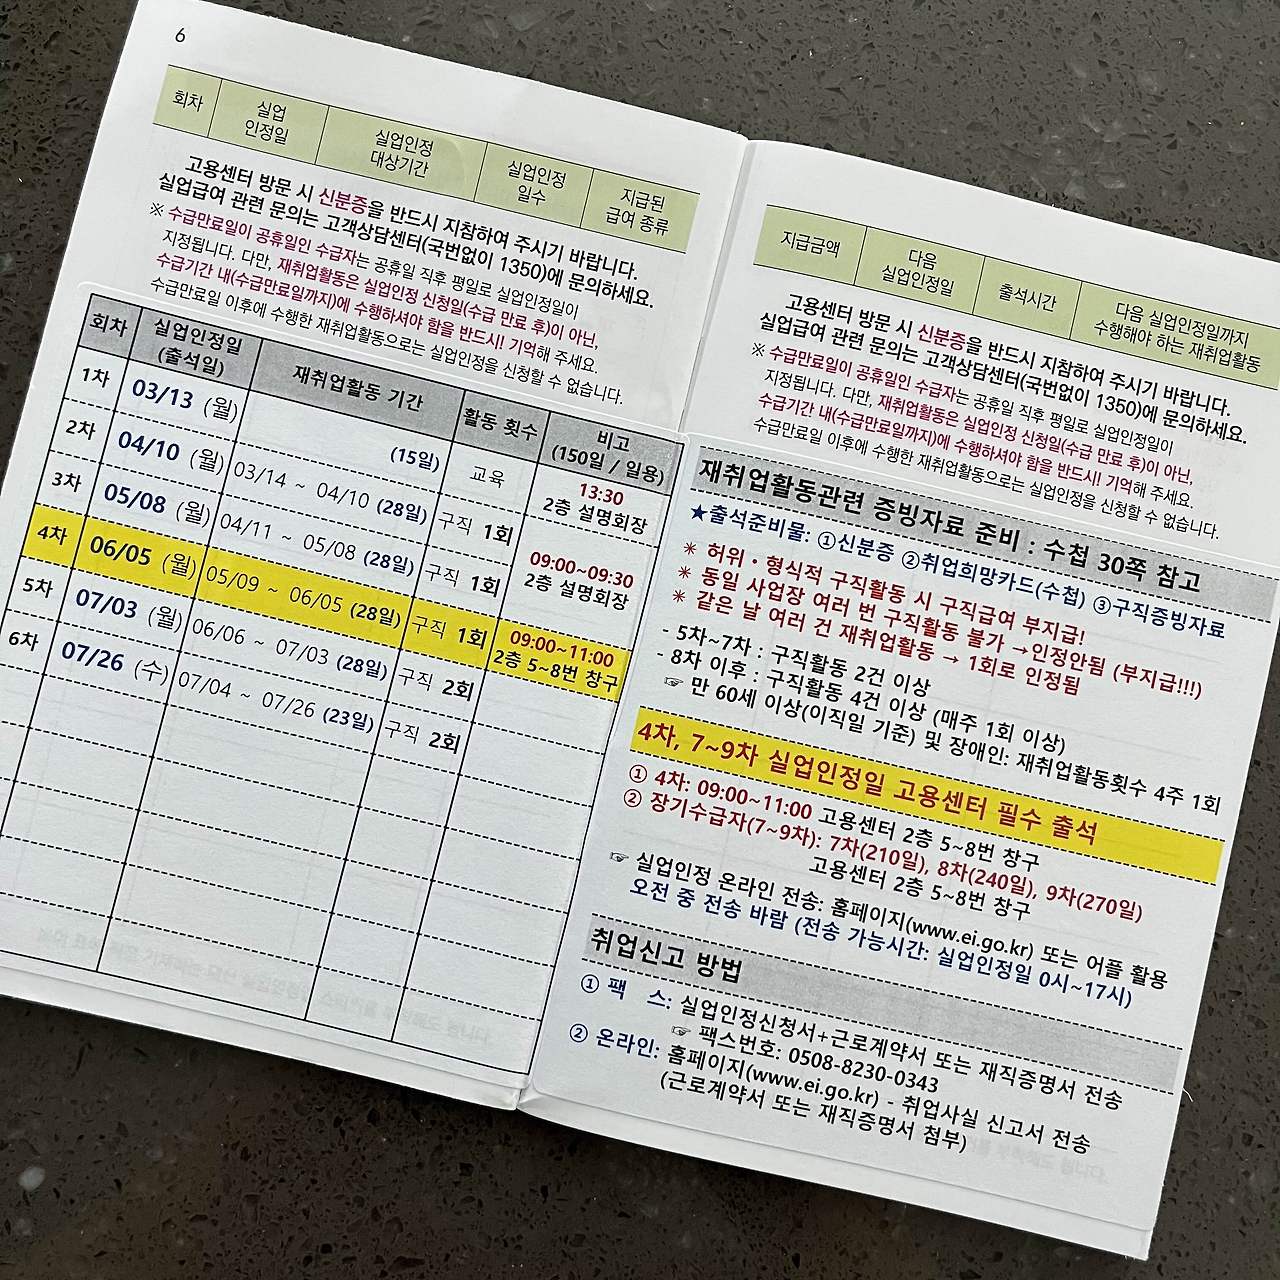 6
회차 실업 인정일 실업인정 대상기간 실업인정 일수 지급된 급여 종류
고용센터 방문 시 신분증을 반드시 지참하여 주시기 바랍니다.
실업급여 관련 문의는 고객상담센터(국번없이 1350)에 문의하세요.
※ 수급만료일이 공휴일인 수급자는 공휴일 직후 평일로 실업인정일이
지정됩니다. 다만, 재취업활동은 실업인정 신청일(수급 만료 후)이 아닌,
수급기간 내(수급만료일까지)에 수행하셔야 함을 반드시! 기억해 주세요.
수급만료일 이후에 수행한 재취업활동으로는 실업인정을 신청할 수 없습니다.
회차 실업인정일 (출석일) 재취업활동 기간 활동 횟수 비고 (150일 / 일용)
1차 03/13 (월) (15일) 교육 13:30 2층 설명회장
2차 04/10 (월) 03/14 ~ 04/10 (28일) 구직 1회 09:00~09:30
3차 05/08 (월) 04/11 ~ 05/08 (28일) 구직 1회 2층 설명회장
4차 06/05 (월) 05/09 ~ 06/05 (28일) 구직 1회 09:00~11:00 2층 5~8번 창구
5차 07/03 (월) 06/06 ~ 07/03 (28일) 구직 2회
6차 07/26 (수) 07/04 ~ 07/26 (23일) 구직 2회
지급금액 다음 실업인정일 출석시간 다음 실업인정일까지 수행해야 하는 재취업활동
고용센터 방문 시 신분증을 반드시 지참하여 주시기 바랍니다.
실업급여 관련 문의는 고객상담센터(국번없이 1350)에 문의하세요.
※ 수급만료일이 공휴일인 수급자는 공휴일 직후 평일로 실업인정일이
지정됩니다. 다만, 재취업활동은 실업인정 신청일(수급 만료 후)이 아닌,
수급기간 내(수급만료일까지)에 수행하셔야 함을 반드시! 기억해 주세요.
수급만료일 이후에 수행한 재취업활동으로는 실업인정을 신청할 수 없습니다.
재취업활동관련 증빙자료 준비 : 수첩 30쪽 참고
★출석준비물: ①신분증 ②취업희망카드(수첩) ③구직증빙자료
* 허위·형식적 구직활동 시 구직급여 부지급!
* 동일 사업장 여러 번 구직활동 불가 →인정안됨 (부지급!!!)
* 같은 날 여러 건 재취업활동 → 1회로 인정됨
- 5차~7차 : 구직활동 2건 이상
- 8차 이후 : 구직활동 4건 이상 (매주 1회 이상)
☞ 만 60세 이상(이직일 기준) 및 장애인: 재취업활동횟수 4주 1회
4차, 7~9차 실업인정일 고용센터 필수 출석
① 4차: 09:00~11:00 고용센터 2층 5~8번 창구
② 장기수급자(7~9차): 7차(210일), 8차(240일), 9차(270일)
고용센터 2층 5~8번 창구
☞ 실업인정 온라인 전송: 홈페이지(www.ei.go.kr) 또는 어플 활용
오전 중 전송 바람 (전송 가능시간: 실업인정일 0시~17시)
취업신고 방법
① 팩 스: 실업인정신청서+근로계약서 또는 재직증명서 전송
☞ 팩스번호: 0508-8230-0343
② 온라인: 홈페이지(www.ei.go.kr) - 취업사실 신고서 전송
(근로계약서 또는 재직증명서 첨부)